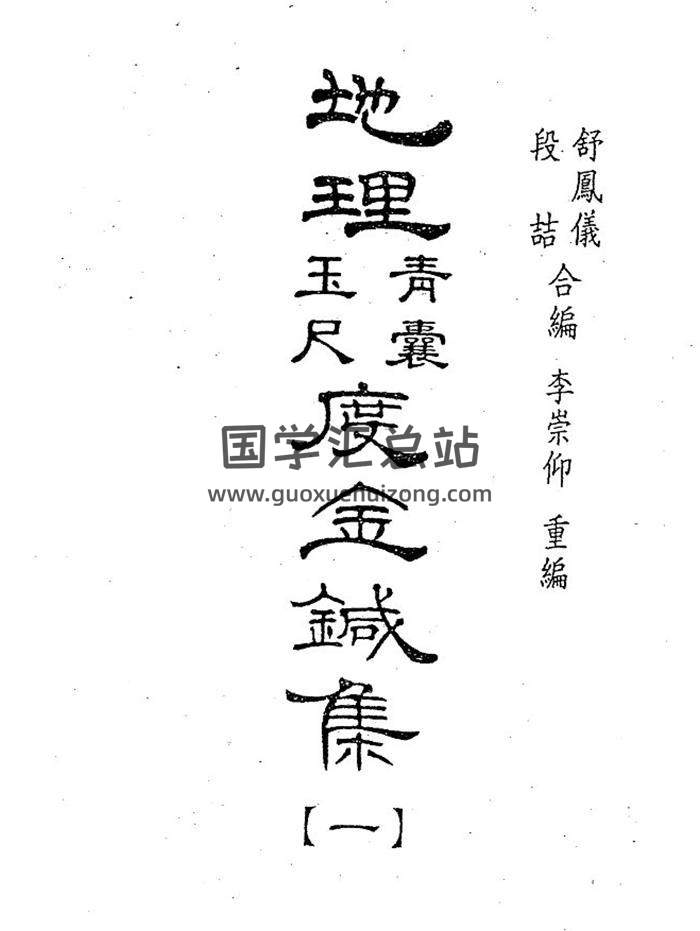 舒鳳儀
段喆 合編 李崇仰 重編
地理
青囊
玉尺
度金鍼集
【一】
国学汇总站
www.guoxuehuizong.com